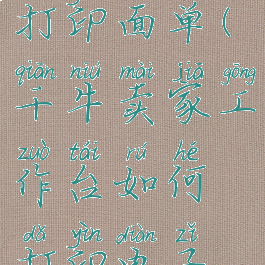 打印面单(
qiān niú mài jiā gōng
千牛卖家工
zuò tái rú hé
作台如何
dǎ yìn diàn zǐ
打印电子